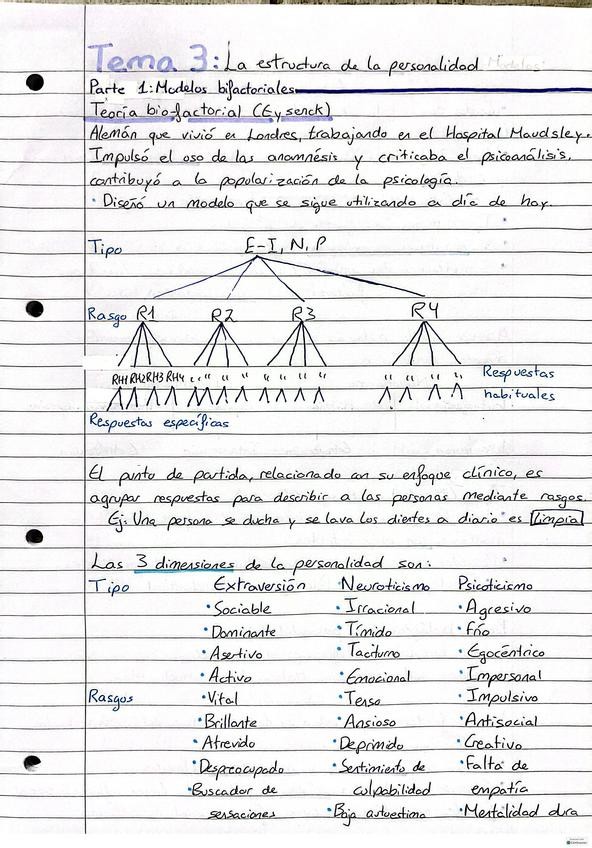 Tema 3: La estructura de la personalidad
Parte 1: Modelos bifactoriales
Teoría bio-factorial (Eysenck)
Alemán que vivió en Londres, trabajando en el Hospital Maudsley.
Impulsó el uso de las anamnésis y criticaba el psicoanálisis,
contribuyó a la popularización de la psicología.
· Diseñó un modelo que se sigue utilizando a día de hoy.
Tipo E-I, N, P
Rasgo R1 R2 R3 R4
RH1 RH2 RH3 RH4 " " " " " " " " " " " " Respuestas
habituales
Respuestas específicas
El punto de partida, relacionado con su enfoque clínico, es
agrupar respuestas para describir a las personas mediante rasgos.
Ej: Una persona se ducha y se lava los dientes a diario es Limpia
Las 3 dimensiones de la personalidad son:
Tipo Extraversión Neuroticismo Psicoticismo
· Sociable · Irracional · Agresivo
· Dominante · Tímido · Frío
· Asertivo · Taciturno · Egocéntrico
· Activo · Emocional · Impersonal
Rasgos · Vital · Tenso · Impulsivo
· Brillante · Ansioso · Antisocial
· Atrevido · Deprimido · Creativo
· Despreocupado · Sentimiento de · Falta de
· Buscador de culpabilidad empatía
sensaciones · Baja autoestima · Mentalidad dura